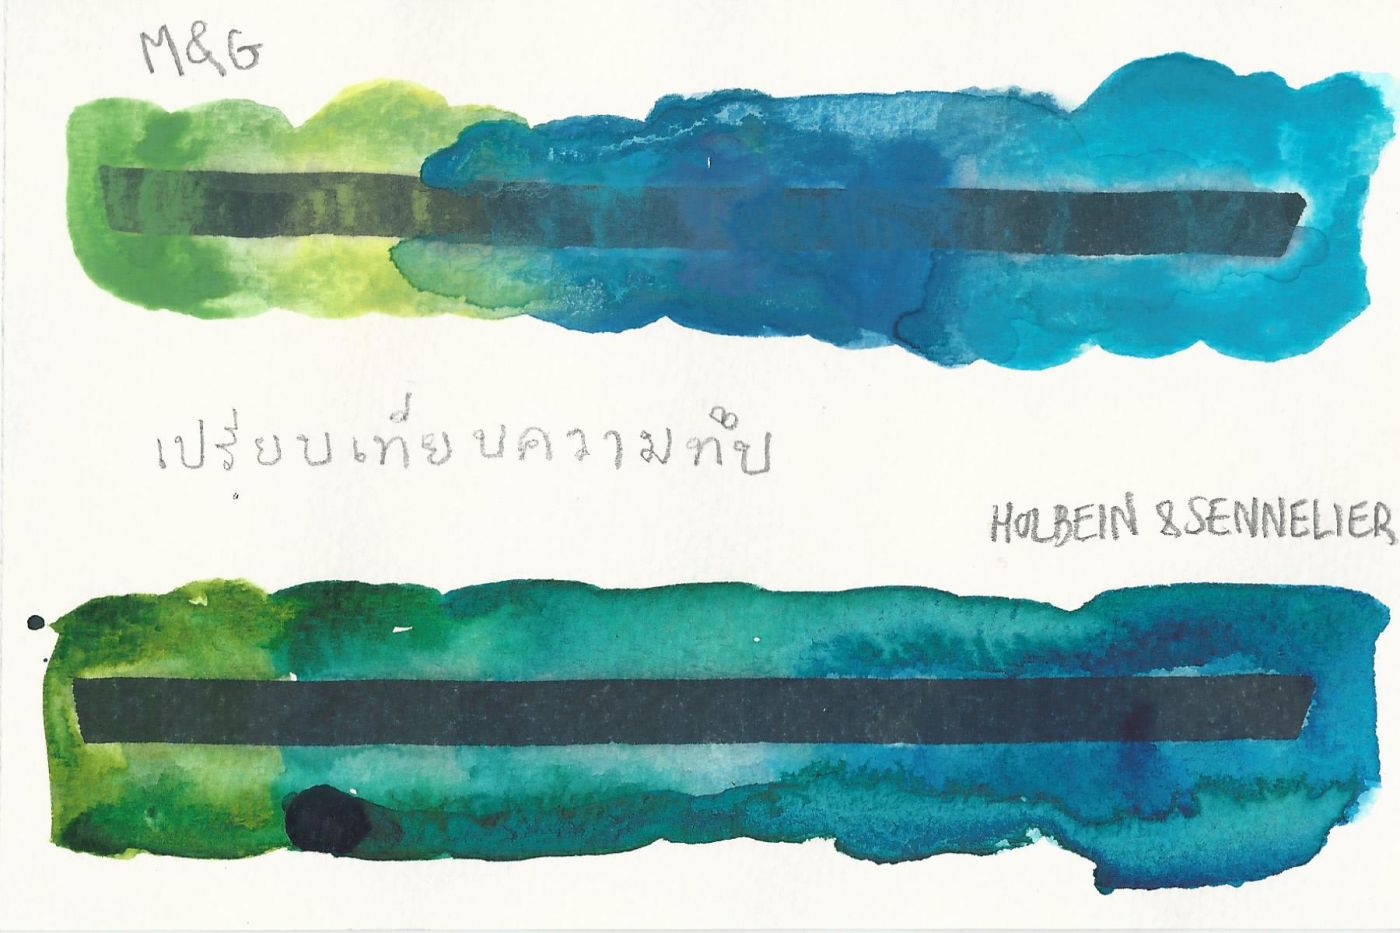 M&G
เปรียบเทียบความทึบ
HOLBEIN & SENNELIER